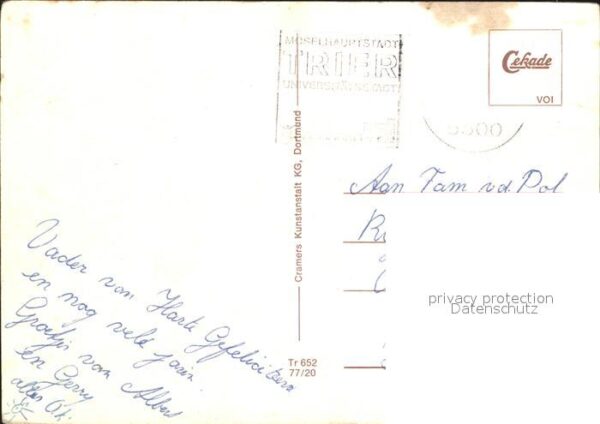 MOSELHAUPTSTADT
TRIER
UNIVERSITÄTSSTADT
5500
Cekade
VOI
Cramers Kunstanstalt KG, Dortmund
Aan Fam vd. Pol
privacy protection
Datenschutz
Vader van Harte Gefeliciteerd
en nog vele jaren
Groetjes van Albert
en Gerry
alles Ok.
Tr 652
77/20